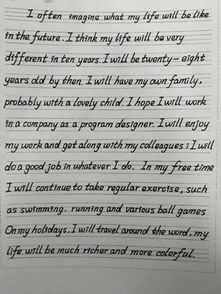 I often imagine what my life will be like
in the future. I think my life will be very
different in ten years. I will be twenty-eight
years old by then. I will have my own family,
probably with a lovely child. I hope I will work
in a company as a program designer. I will enjoy
my work and get along with my colleagues; I will
do a good job in whatever I do. In my free time
I will continue to take regular exercise, such
as swimming. running and various ball games
On my holidays, I will travel around the word, my
life will be much richer and more colorful.